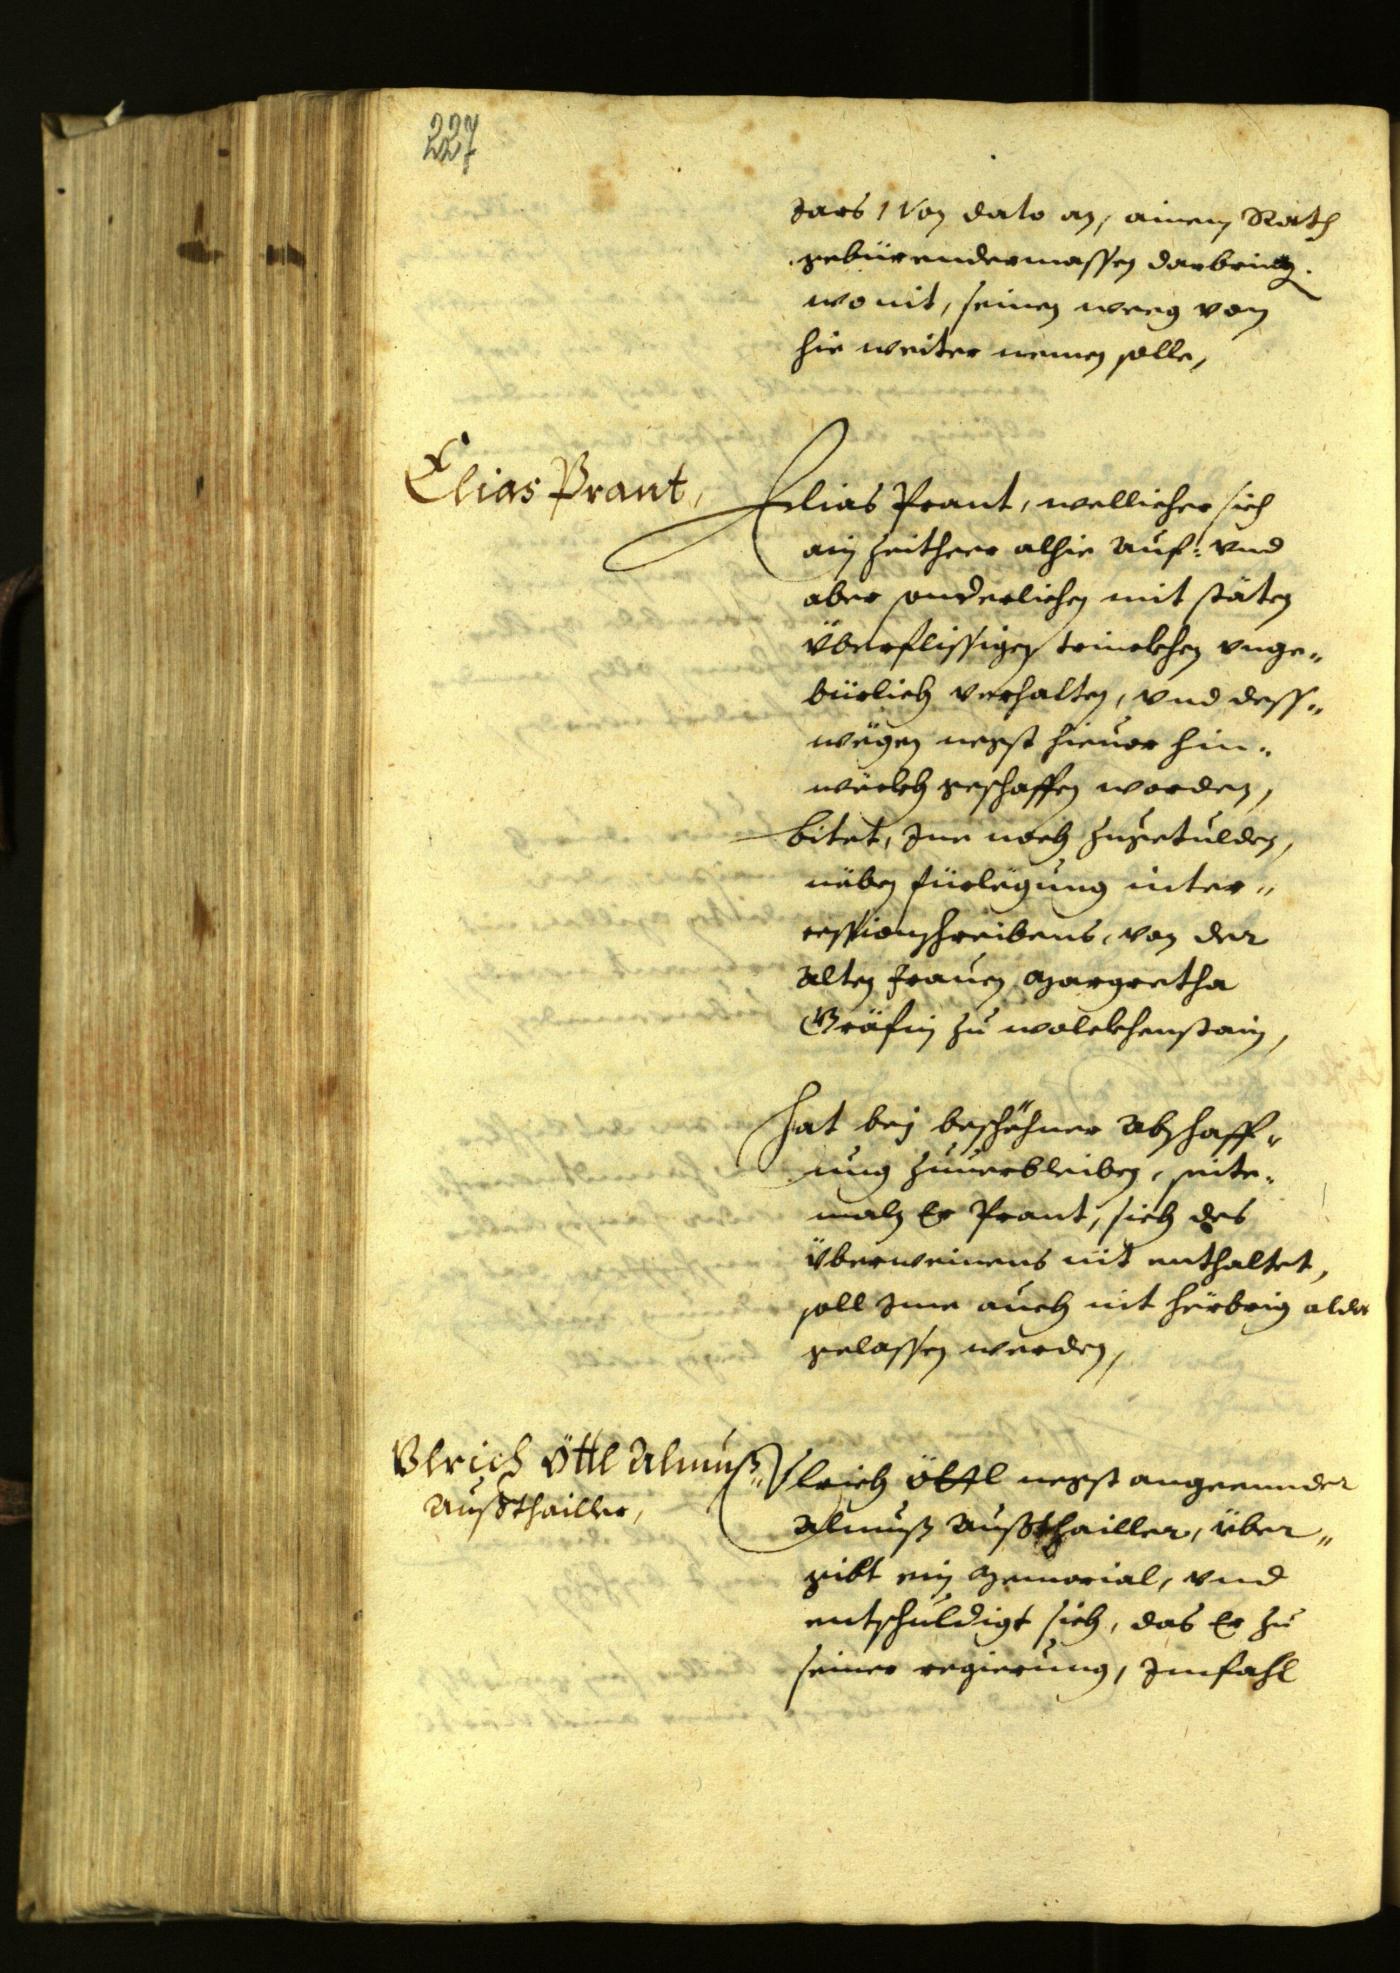 227
Jars / Von dato an, ainem Rath
gebürendermassen darbring.
wo nit, seinen weeg von
hie weiter nemen solle,
Elias Prant,
Elias Prant, wellicher sich
ain Zeitheer alhie Auf: vnd
aber sonderlichen mit stäten
Überflissigen trinckhen vnge„
bürlich verhalten, vnd dess„
wëgen negst hieuor hin„
wëckh geschaffen worden,
bitet, Jne noch zugetulden,
nëben fürlëgung inter„
cessionschreibens, von der
Alten Frauen Margretha
Gräfin zu wolckhenstain,
Hat bey beschëhner Abschaff„
ung zuuerbleiben, seite„
maln Er Prant, sich des
Überweinens nit enthaltet,
soll Jme auch nit hërbrig alda
gelassen werden,
Vlrich Öttl Almuß„
Außthailler,
Vlrich Öttl negst angeennder
Almuß Außthailler, über„
gibt ein Memorial, vnd
entschuldigt sich, das Er zu
seiner regierung, Jmfahl